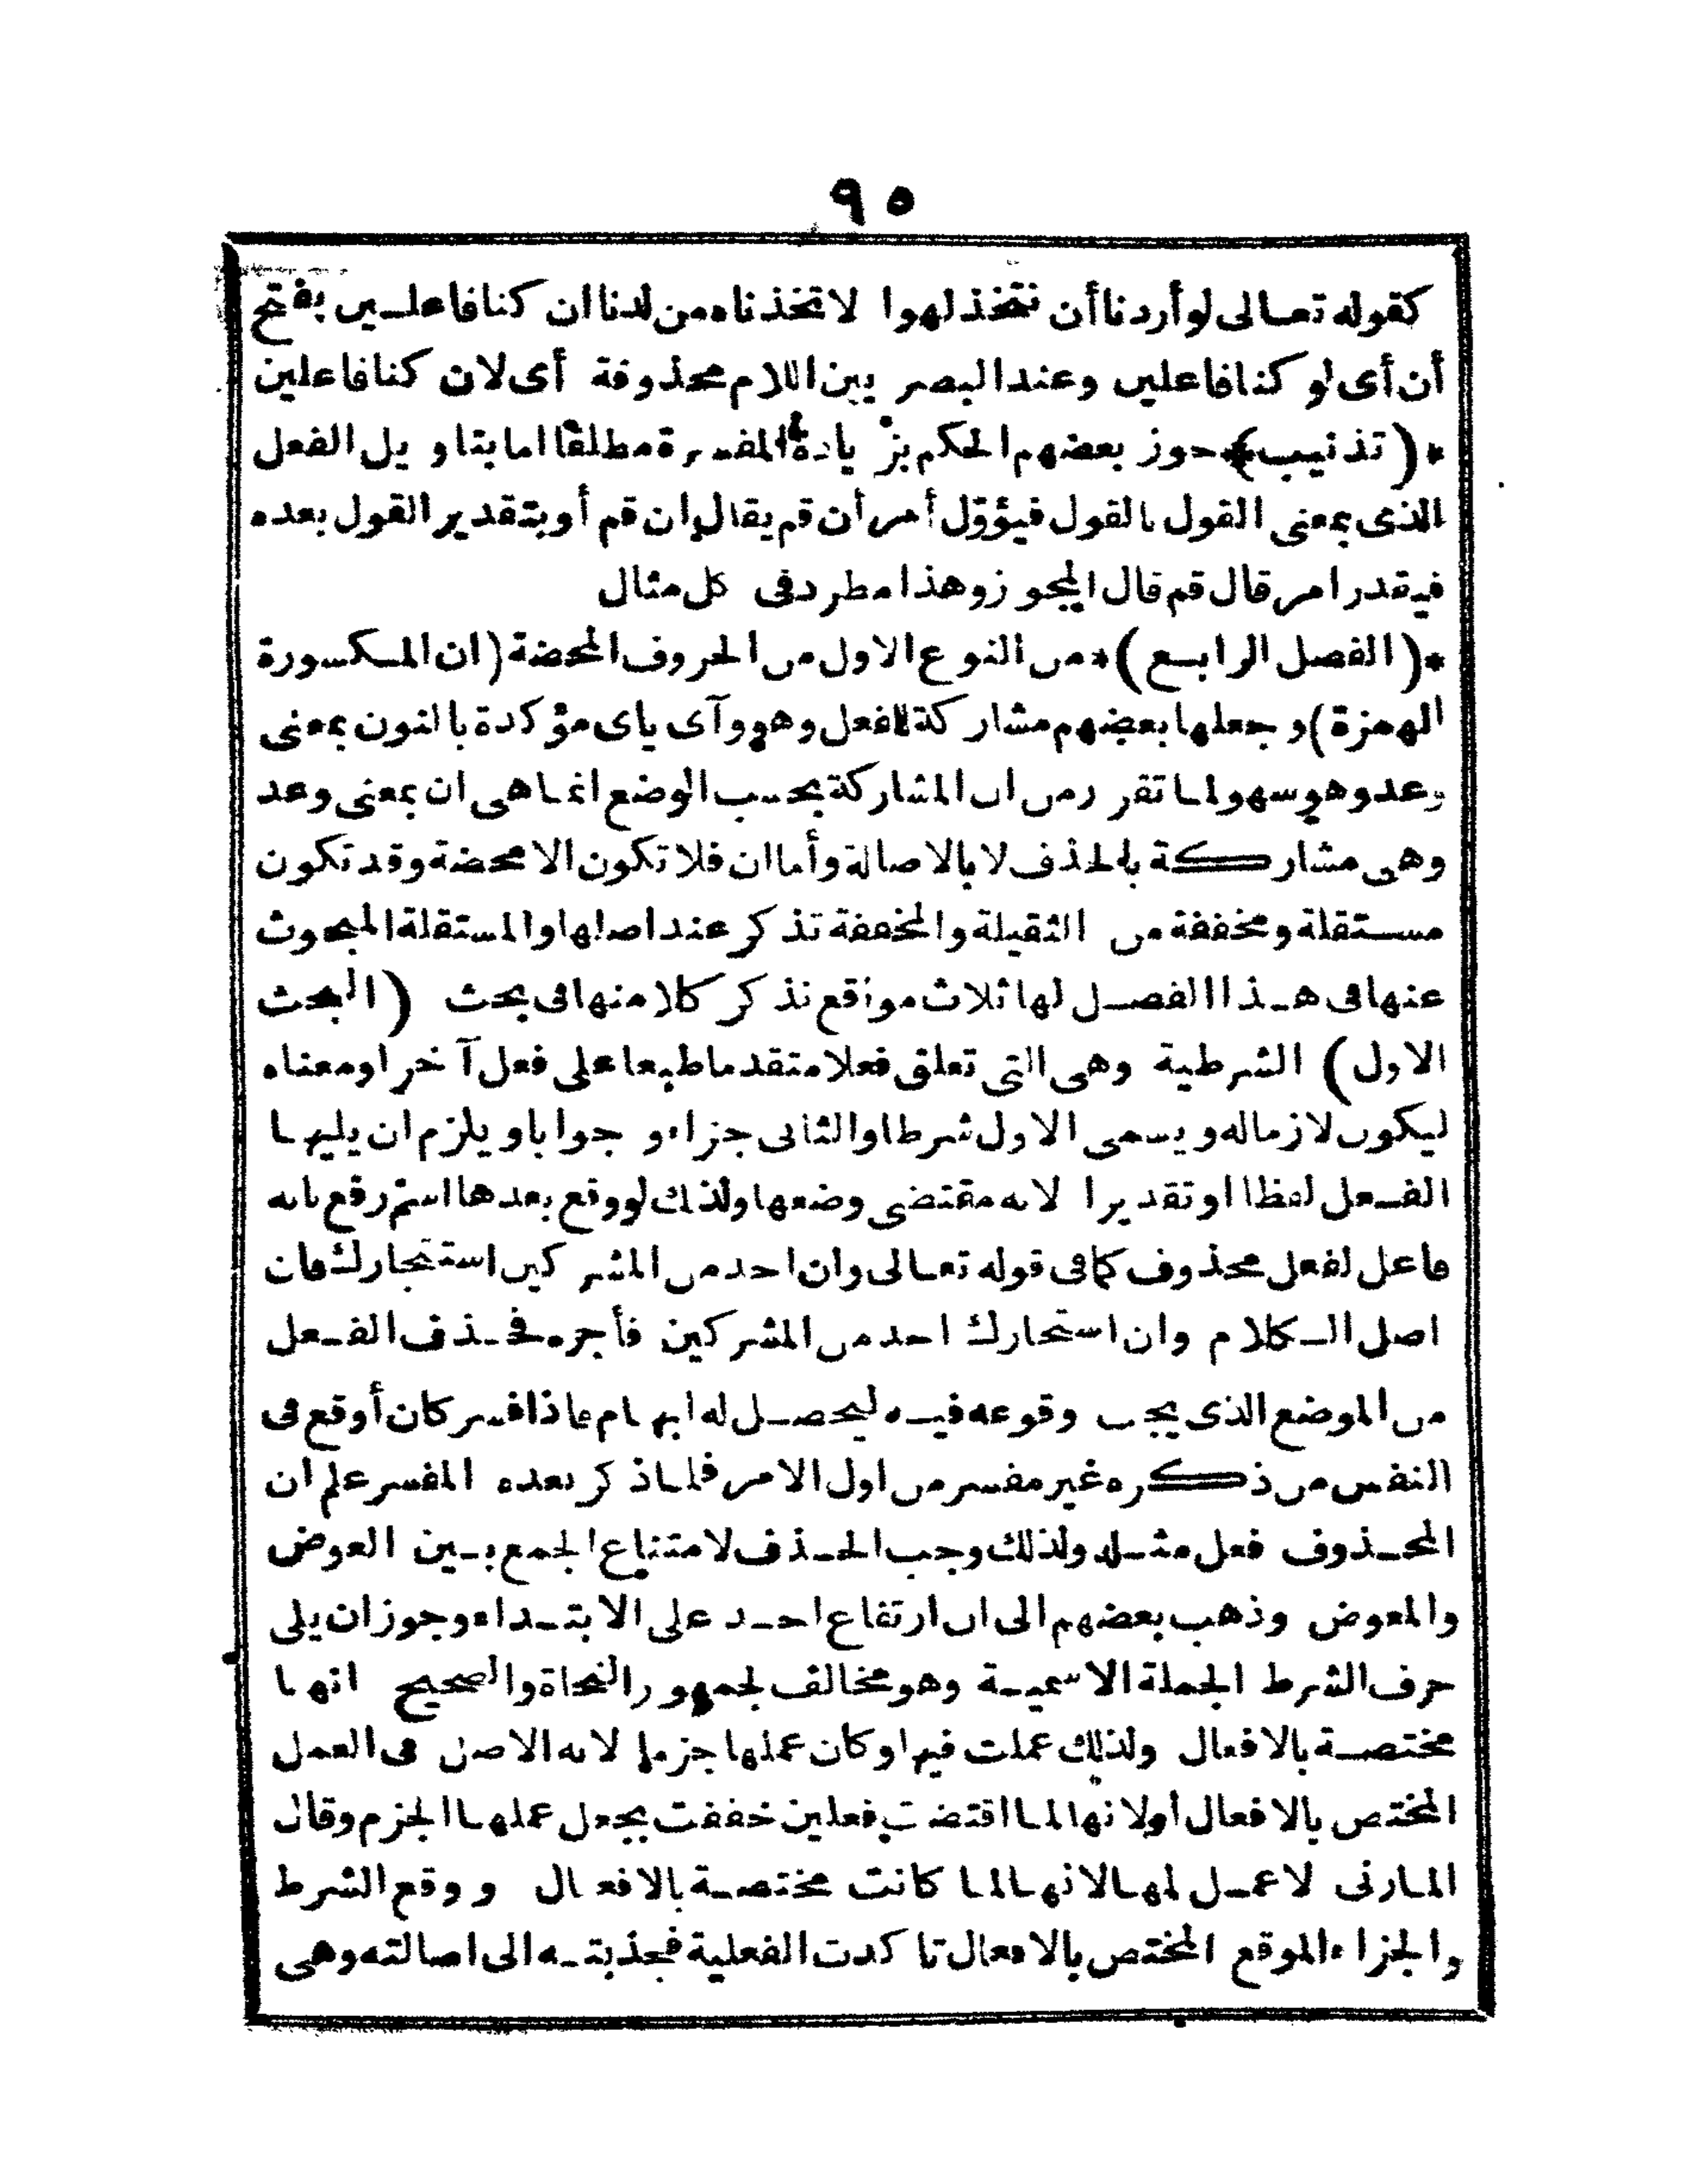 ٩٥
كقوله تعالى لو أردنا أن نتخذ لهوا لاتخذناه من لدنا ان كنا فاعلين بفتح
أن أى لو كنا فاعلين وعند البصر يين اللام محذوفة أى لان كنا فاعلين
*(تذنيب)* جوز بعضهم الحكم بزيادة المفسرة مطلقا اما بتاويل الفعل
الذى بمعنى القول بالقول فيؤوّل أمر أن قم يقال ان قم أو بتقدير القول بعده
فيقدر امر قال قم قال المجوز وهذا مطرد فى كل مثال
*(الفصل الرابع)* من النوع الاول من الحروف المحضة (ان المكسورة
الهمزة) وجعلها بعضهم مشاركة للفعل وهو وآى ياى مؤكدة بالنون بمعنى
وعد وهو سهو لما تقرر من ان المشاركة بحسب الوضع انما هى ان بمعنى وعد
وهى مشاركة بالحذف لا بالاصالة وأما ان فلا تكون الا محضة وقد تكون
مستقلة ومخففة من الثقيلة والمخففة تذكر عند اصلها والمستقلة المبحوث
عنها فى هذا الفصل لها ثلاث مواقع نذكر كلا منها فى بحث (البحث
الاول) الشرطية وهى التى تعلق فعلا متقدما طبعا على فعل آخر او معناه
ليكون لازما له ويسمى الاول شرطا والثانى جزاء وجوابا ويلزم ان يليها
الفعل لفظا او تقديرا لانه مقتضى وضعها ولذلك لو وقع بعدها اسم رفع بانه
فاعل لفعل محذوف كما فى قوله تعالى وان احد من المشركين استجارك فان
اصل الكلام وان استجارك احد من المشركين فأجره فحذف الفعل
من الموضع الذى يجب وقوعه فيه ليحصل له ابهام فاذا فسر كان أوقع فى
النفس من ذكره غير مفسر من اول الامر فلما ذكر بعده المفسر علم ان
المحذوف فعل مثله ولذلك وجب الحذف لامتناع الجمع بين العوض
والمعوض وذهب بعضهم الى ان ارتفاع احد على الابتداء وجوز ان يلى
حرف الشرط الجملة الاسمية وهو مخالف لجمهور النحاة والصحيح انها
مختصة بالافعال ولذلك عملت فيها وكان عملها جزما لانه الاصل فى العمل
المختص بالافعال أولانها لما اقتضت فعلين خففت بجعل عملها الجزم وقال
المازنى لا عمل لها لانها لما كانت مختصة بالافعال ووقع الشرط
والجزاء الموقع المختص بالافعال تاكدت الفعلية فجذبته الى اصالته وهى